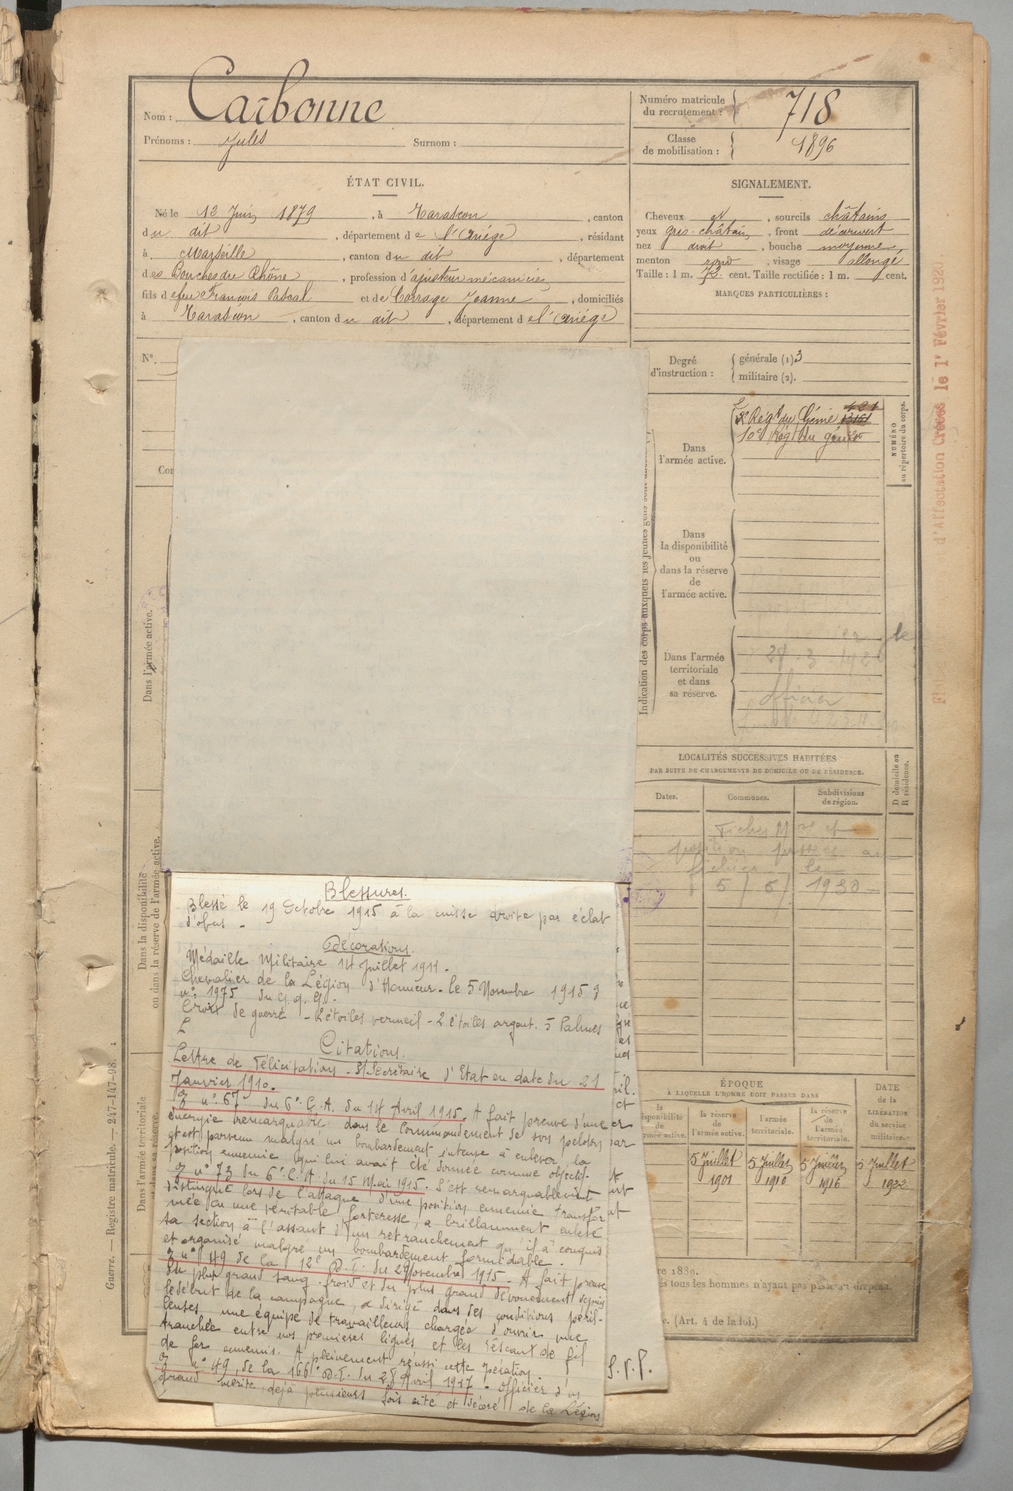 Nom : Carbonne
Prénoms : Jules Surnom :
Numéro matricule
du recrutement : 718
Classe
de mobilisation : 1896
ÉTAT CIVIL.
Né le 12 Juin 1879, à Tarascon, canton
du dit, département de l'Ariège, résidant
à Marseille, canton du dit, département
des Bouches du Rhône, profession d'ajusteur mécanicien
fils de feu François Pascal et de Jeanne, domiciliés
à Tarascon, canton du dit, département de l'Ariège
SIGNALEMENT.
Cheveux et, sourcils châtains
yeux gris-châtain, front découvert
nez droit, bouche moyenne,
menton rond, visage allongé
Taille : 1 m. 72 cent. Taille rectifiée : 1 m. cent.
MARQUES PARTICULIÈRES :
N°.
Degré
d'instruction :
générale (1) 3
militaire (2).
Dans
l'armée active.
Régt du Génie
10e Régt du génie
NUMÉRO
au répertoire du corps.
Dans
la disponibilité
ou
dans la réserve
de
l'armée active.
Dans l'armée
territoriale
et dans
sa réserve.
officier
Indication des corps auxquels les jeunes gens sont
LOCALITÉS SUCCESSIVES HABITÉES
PAR SUITE DE CHANGEMENTS DE DOMICILE OU DE RÉSIDENCE.
Dates.
Communes.
Subdivisions
de région.
D domicile ou
R résidence.
5 / 6 / 1930
ÉPOQUE
À LAQUELLE L'HOMME DOIT PASSER DANS
la
disponibilité
de
l'armée active.
la réserve
de
l'armée active.
l'armée
territoriale.
la réserve
de
l'armée
territoriale.
DATE
de la
LIBÉRATION
du service
militaire.
5 Juillet
1901
5 Juillet
1910
5 Juillet
1916
5 Juillet
1922
(Art. 4 de la loi.)
Dans l'armée active.
Dans la disponibilité
ou dans la réserve de l'armée active.
Dans l'armée territoriale
Guerre. — Registre matricule. — 247-147-98.
d'Affectation Créées le 1er Février 1920
Blessures.
Blessé le 19 Octobre 1915 à la cuisse droite par éclat
d'obus -
Décorations.
Médaille Militaire 14 Juillet 1911.
Chevalier de la Légion d'Honneur - le 5 Novembre 1915
n° 1975 du G.Q.G.
Croix de guerre - 2 étoiles vermeil - 2 étoiles argent. 5 Palmes
Citations.
Lettre de Félicitations - S/Secrétaire d'Etat en date du 21
Janvier 1910.
n° 67 du 6e C.A. du 14 Avril 1915. A fait preuve d'une
énergie remarquable dans le commandement de son peloton
et est parvenu malgré un bombardement intense à enlever la
position ennemie qui lui avait été donnée comme objectif.
n° 73 du 6e C.A. du 15 Mai 1915. S'est remarquablement
distingué lors de l'attaque d'une position ennemie transfor
mée en une véritable forteresse, a brillamment enlevé
sa section à l'assaut d'un retranchement qu'il a conquis
et organisé malgré un bombardement formidable.
n° 49 de la 12e D.I. du 2 Novembre 1915 - A fait preuve
du plus grand sang-froid et du plus grand dévouement depuis
le début de la campagne, a dirigé dans des conditions péril-
leuses, une équipe de travailleurs chargée d'ouvrir une
tranchée entre nos premières lignes et les réseaux de fil
de fer ennemis. A pleinement réussi cette opération.
n° 49 de la 166e D.I. du 28 Avril 1917 - Officier d'un
grand mérite, déjà plusieurs fois cité et décoré de la Légion